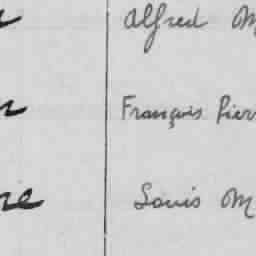 Alfred M
François Pierr
Louis M